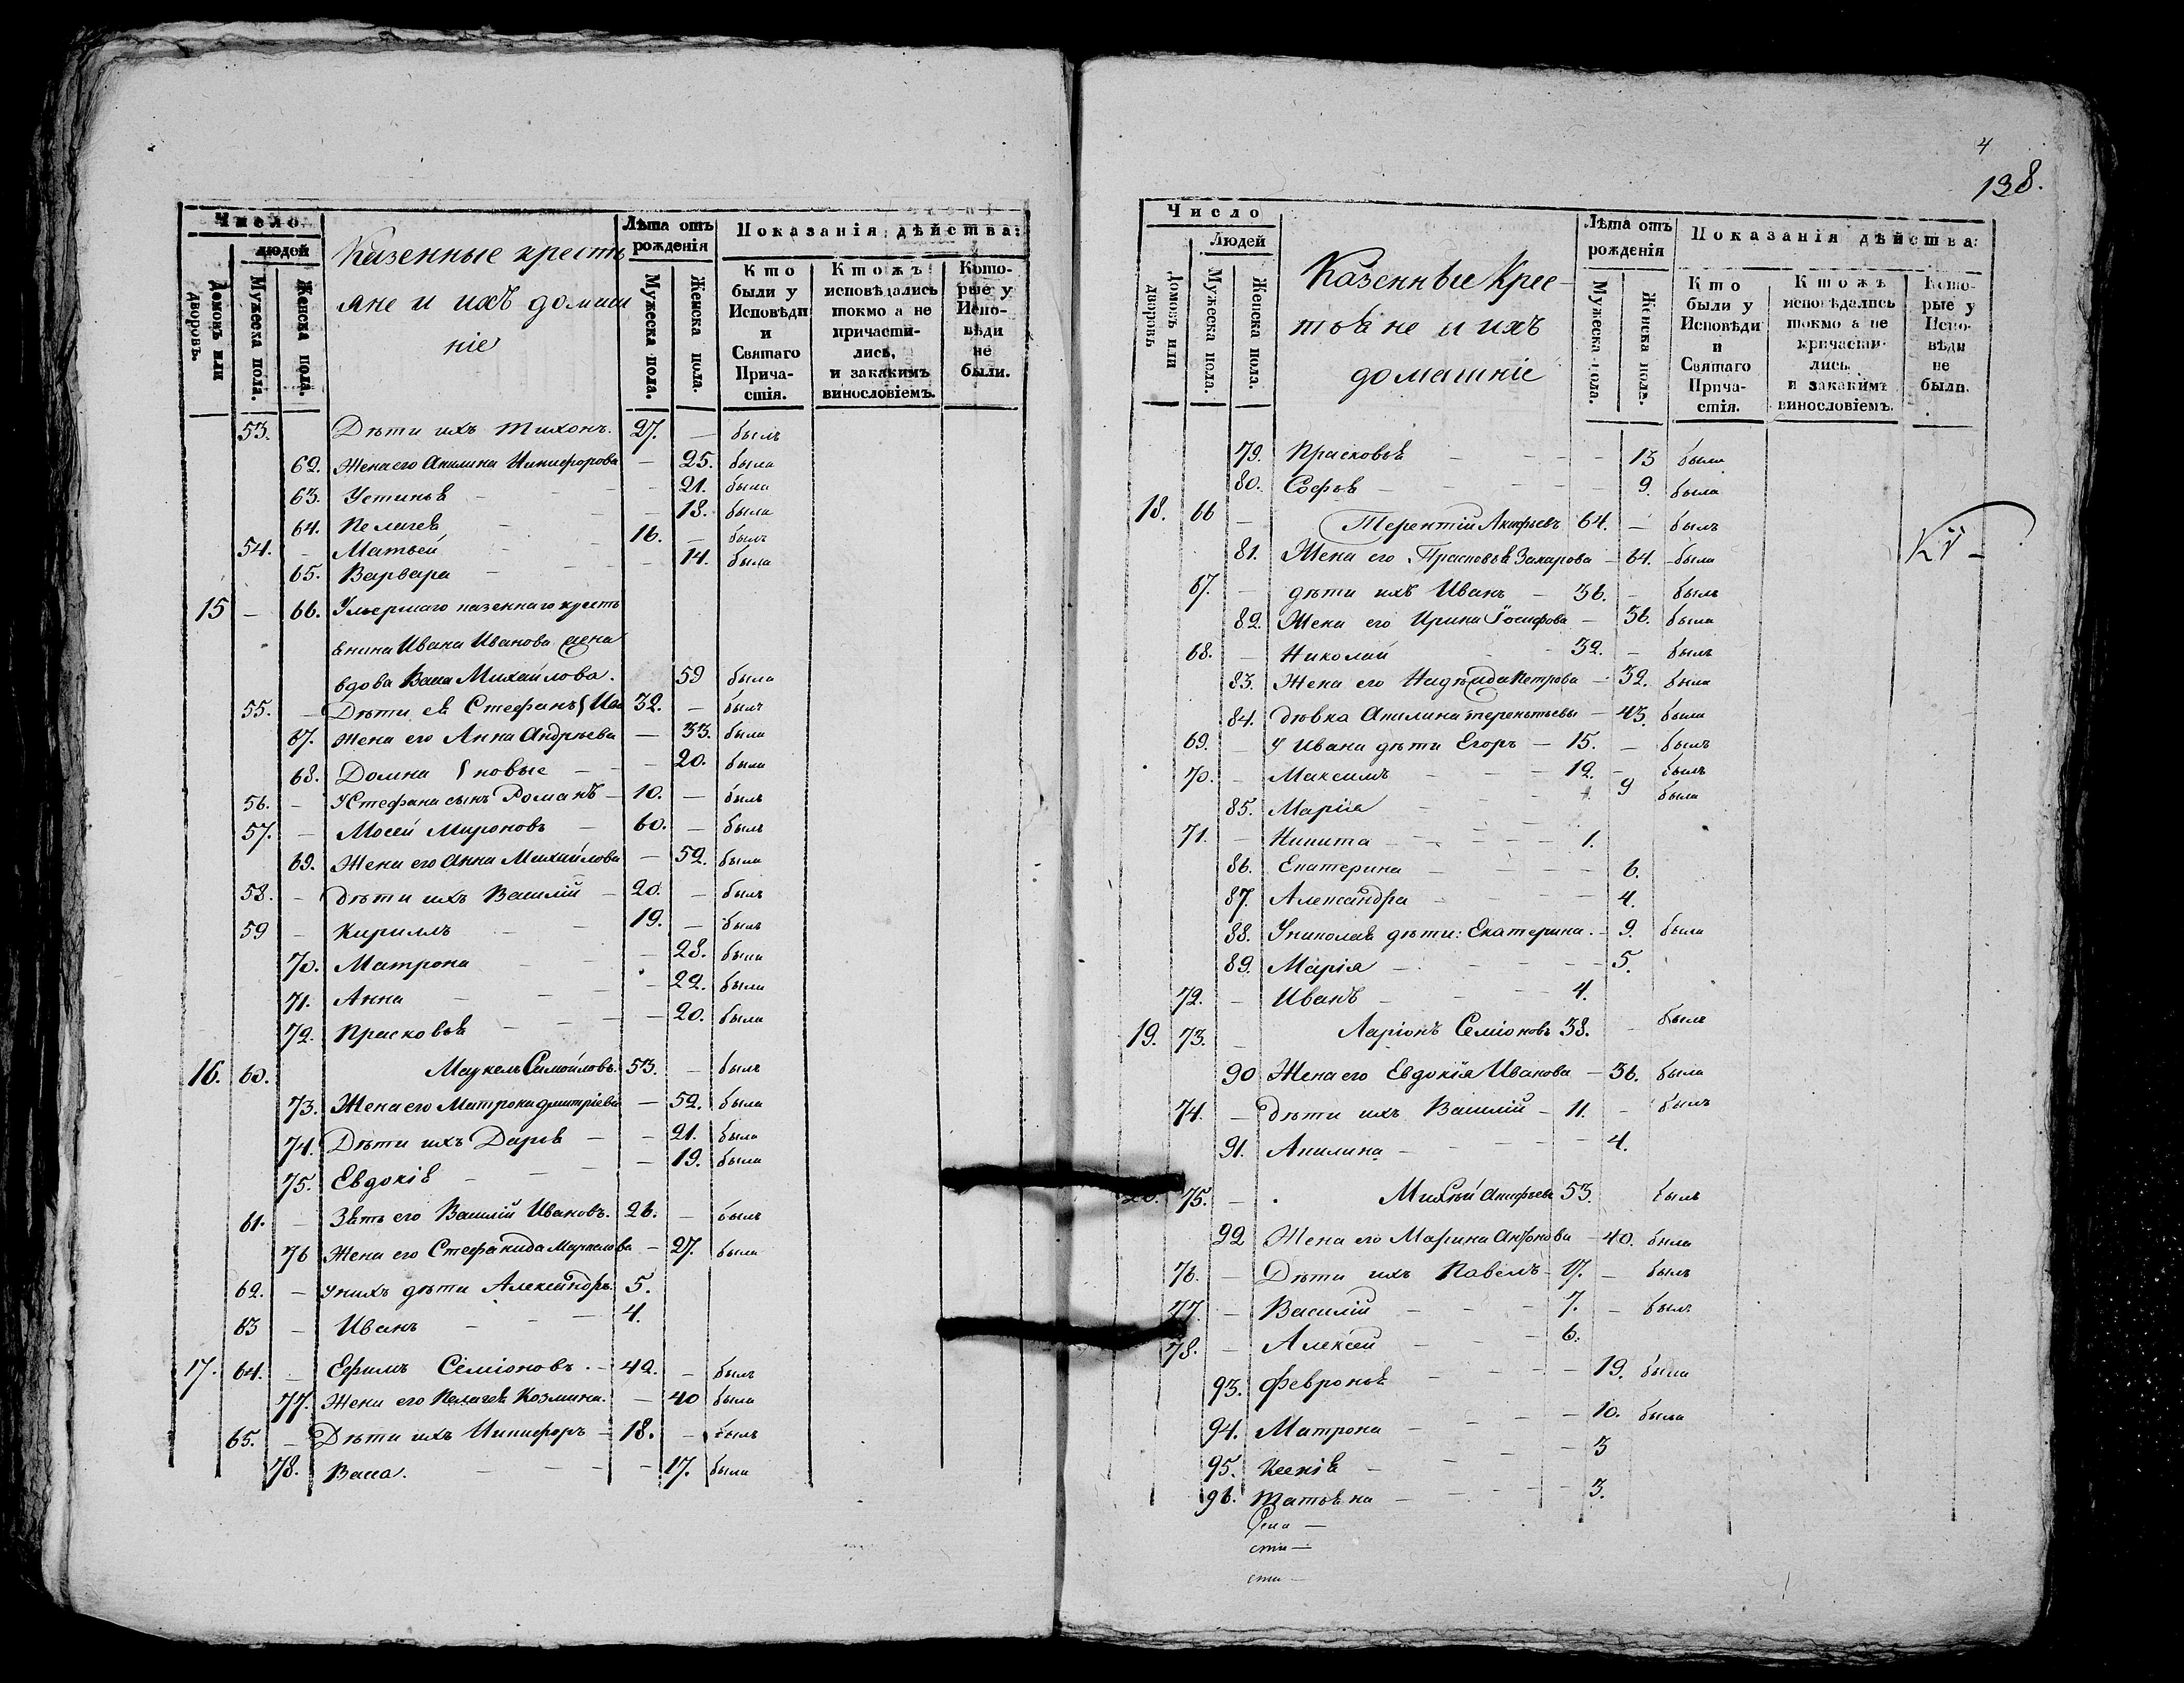 Число
людей
Домовъ или дворовъ.
Мужеска пола.
Женска пола.
Казенные кресть
яне и ихъ домаш
ніе
Лѣта отъ рожденія
Мужеска пола.
Женска пола.
Показанія дѣйства:
Кто были у Исповѣди и Святаго Причастія.
Ктожъ исповѣдались токмо а не причастились, и закакимъ винословіемъ.
Которые у Исповѣди не были.
53. Дѣти ихъ Тихонъ. 27. — былъ
62. Жена его Акилина Никифорова — 25. была
63. Устинья — 21. была
64. Пелагея — 18. была
54. — Матвей 16. — былъ
65. Варвара — 14. была
15 — 66. Умершаго казеннаго кресть
янина Ивана Иванова жена
вдова Васса Михайлова. 59 была
55. — Дѣти ея Стефанъ Ива 32. — былъ
67. Жена его Анна Андрѣева — 33. была
68. Домна новые — 20. была
56. — У Стефана сынъ Романъ — 10. — былъ
57. — Мосей Мироновъ 60. — былъ
69. Жена его Анна Михайлова — 52. была
58. — Дѣти ихъ Василій — 20. — былъ
59 — Кириллъ 19. — былъ
70. Матрона — 28. была
71. Анна — 22. была
72. Прасковья — 20. была
16. 60. Маркелъ Самойловъ. 53. — былъ
73. Жена его Матрона Дмитріева — 52. была
74. Дѣти ихъ Дарья — 21. была
75. Евдокія — 19. была
61. — Зять его Василій Ивановъ. 26. — былъ
76 Жена его Стефанида Маркелова — 27. была
62. — У нихъ дѣти Александръ. 5.
63 — Иванъ 4.
17. 64. — Ефимъ Семіоновъ. — 42. — былъ
77. Жена его Пелагея Козмина. — 40 была
65. — Дѣти ихъ Никифоръ — 18. — былъ
78. Васса. — 17. была
4
138.
Число
Людей
Домовъ или дворовъ
Мужеска пола.
Женска пола.
Казенные Крес-
тьяне и ихъ
домашніе
Лѣта отъ рожденія
Мужеска пола.
Женска пола.
Показанія дѣйства:
Кто были у Исповѣди и Святаго Причастія.
Ктожъ исповѣдались токмо а не причастились, и закакимъ винословіемъ.
Которые у Исповѣди не были.
79. Прасковья — 13 была
80. Софья — 9. была
18. 66 — Терентій Акифьевъ 64. — былъ
81. Жена его Прасковья Захарова — 64. была
67. — дѣти ихъ Иванъ — 36. — былъ
82. Жена его Ирина Іосифова — 36. была
68. — Николай 32. — былъ
83. Жена его Надѣжда Петрова — 32. была
84. дѣвка Акилина Терентьева — 43. была
69. — У Ивана дѣти Егоръ — 15. — былъ
70. — Максимъ — 12. — былъ
85. Марія 9 была
71. — Никита — 1.
86. Екатерина — 6.
87. Александра — 4.
88. У Николая дѣти: Екатерина. — 9. была
89. Марія — 5.
72. — Иванъ — 4.
19. 73. — Ларіонъ Семіоновъ 38. — былъ
90 Жена его Евдокія Иванова — 36. была
74. — Дѣти ихъ Василій — 11. — былъ
91. Акилина — 4.
75. — Акифьевъ 53. былъ
92 Жена его Марина Антонова — 40. была
76. — Дѣти ихъ Павелъ — 17. — былъ
77. — Василій 7. — былъ
78. — Алексей 6.
93. Февронья — 19. была
94. Матрона — 10. была
95. Ксенія — 3
96. Татьяна — 3.